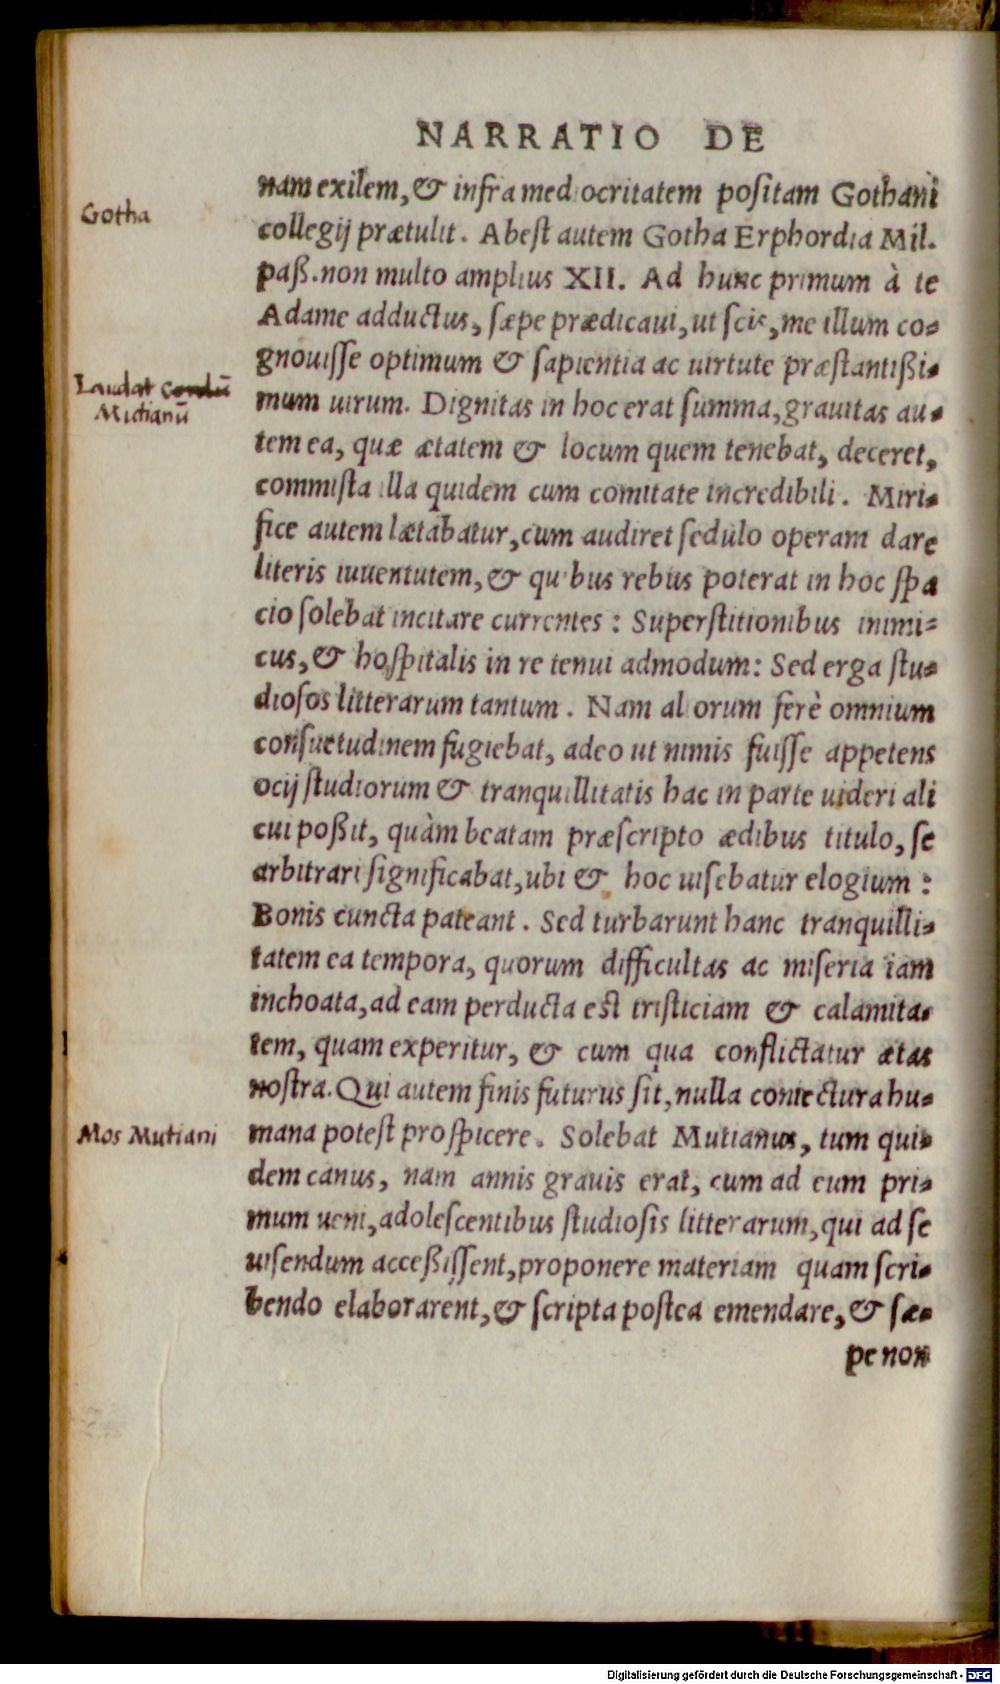 NARRATIO DE
nam exilem, & infra mediocritatem positam Gothani
Gotha
collegij prætulit. Abest autem Gotha Erphordia Mil.
paß. non multo amplius XII. Ad hunc primum à te
Adame adductus, sæpe prædicaui, ut scis, me illum co-
gnouisse optimum & sapientia ac uirtute præstantißi-
Laudat
Mutianū
mum uirum. Dignitas in hoc erat summa, grauitas au-
tem ea, quæ ætatem & locum quem tenebat, deceret,
commista illa quidem cum comitate incredibili. Miri-
fice autem lætabatur, cum audiret sedulo operam dare
literis iuuentutem, & quibus rebus poterat in hoc spa
cio solebat incitare currentes: Superstitionibus inimi-
cus, & hospitalis in re tenui admodum: Sed erga stu-
diosos litterarum tantum. Nam aliorum ferè omnium
consuetudinem fugiebat, adeo ut nimis fuisse appetens
ocij studiorum & tranquillitatis hac in parte uideri ali
cui poßit, quàm beatam præscripto ædibus titulo, se
arbitrari significabat, ubi & hoc uisebatur elogium:
Bonis cuncta pateant. Sed turbarunt hanc tranquilli-
tatem ea tempora, quorum difficultas ac miseria iam
inchoata, ad eam perducta est tristiciam & calamita-
tem, quam experitur, & cum qua conflictatur ætas
nostra. Qui autem finis futurus sit, nulla coniectura hu-
Mos Mutiani
mana potest prospicere. Solebat Mutianus, tum qui-
dem canus, nam annis grauis erat, cum ad eum pri-
mum ueni, adolescentibus studiosis litterarum, qui ad se
uisendum acceßissent, proponere materiam quam scri-
bendo elaborarent, & scripta postea emendare, & sæ-
pe non
Digitalisierung gefördert durch die Deutsche Forschungsgemeinschaft - DFG